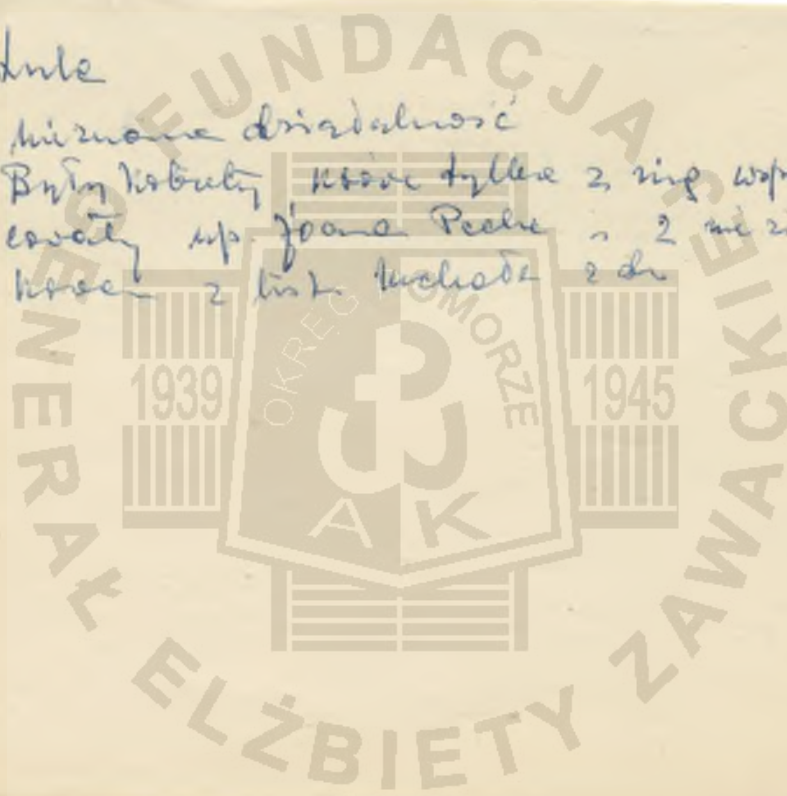 nieznana działalność
Były kobiety które tylko z nią wsp
cowały np. Joanna
z list. Michała z dn
FUNDACJA GENERAŁ ELŻBIETY ZAWACKIEJ
OKRĘG POMORZE
1939
1945
AK